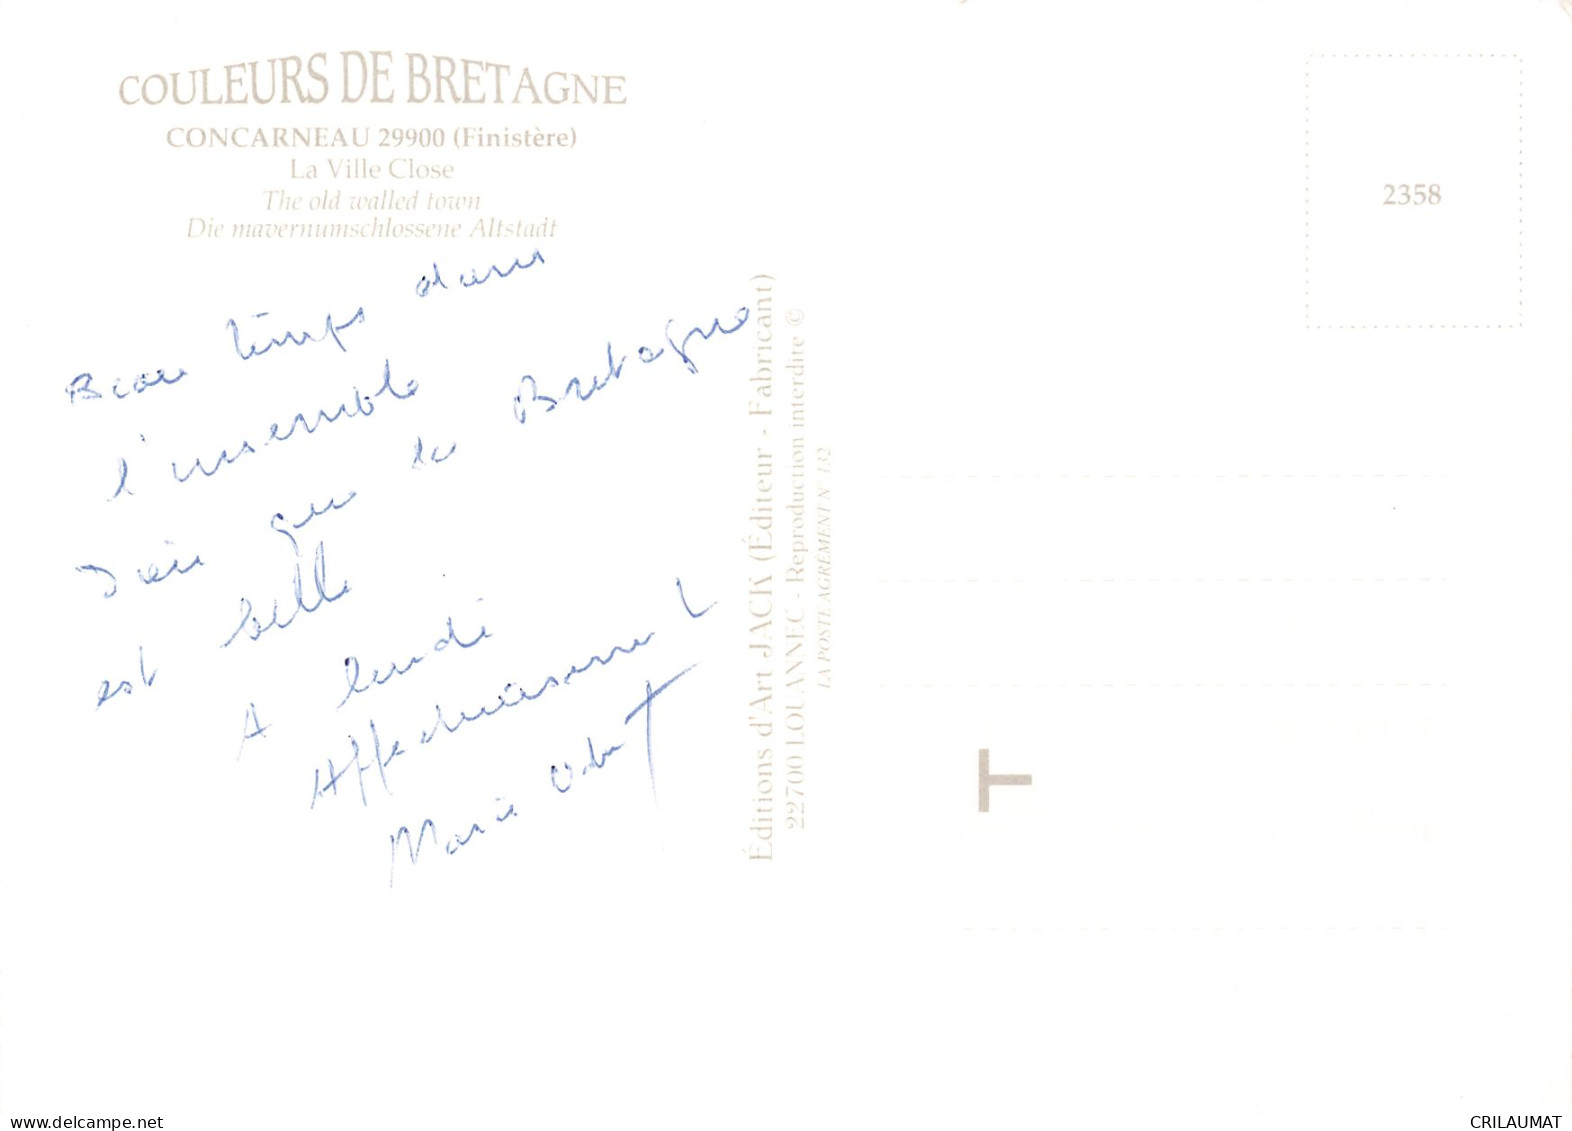 COULEURS DE BRETAGNE
CONCARNEAU 29900 (Finistère)
La Ville Close
The old walled town
Die mavernumschlossene Altstadt
Beau temps dans
l'ensemble
Dieu que la Bretagne
est belle
A lundi
Affectueusement
Marie
Éditions d'Art JACK (Éditeur - Fabricant)
22700 LOUANNEC - Reproduction interdite ©
LA POSTE AGRÉMENT N° 132
2358
T
www.delcampe.net
CRILAUMAT